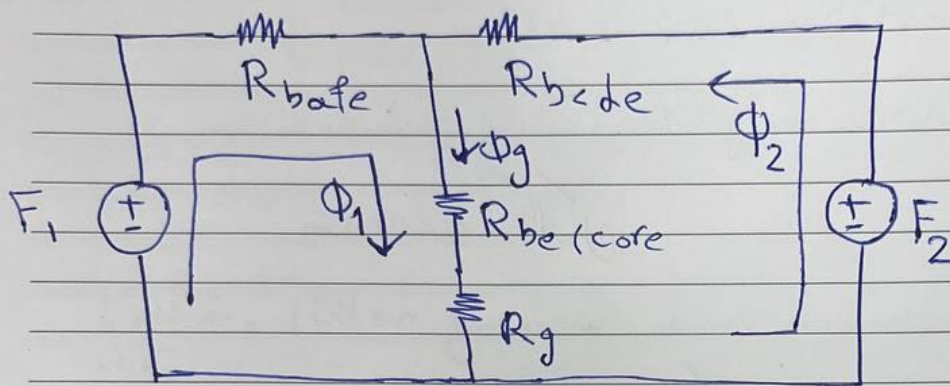 R_bafe R_bcde
Φ_g Φ_2
F_1 ± Φ_1 R_be(core ± F_2
R_g